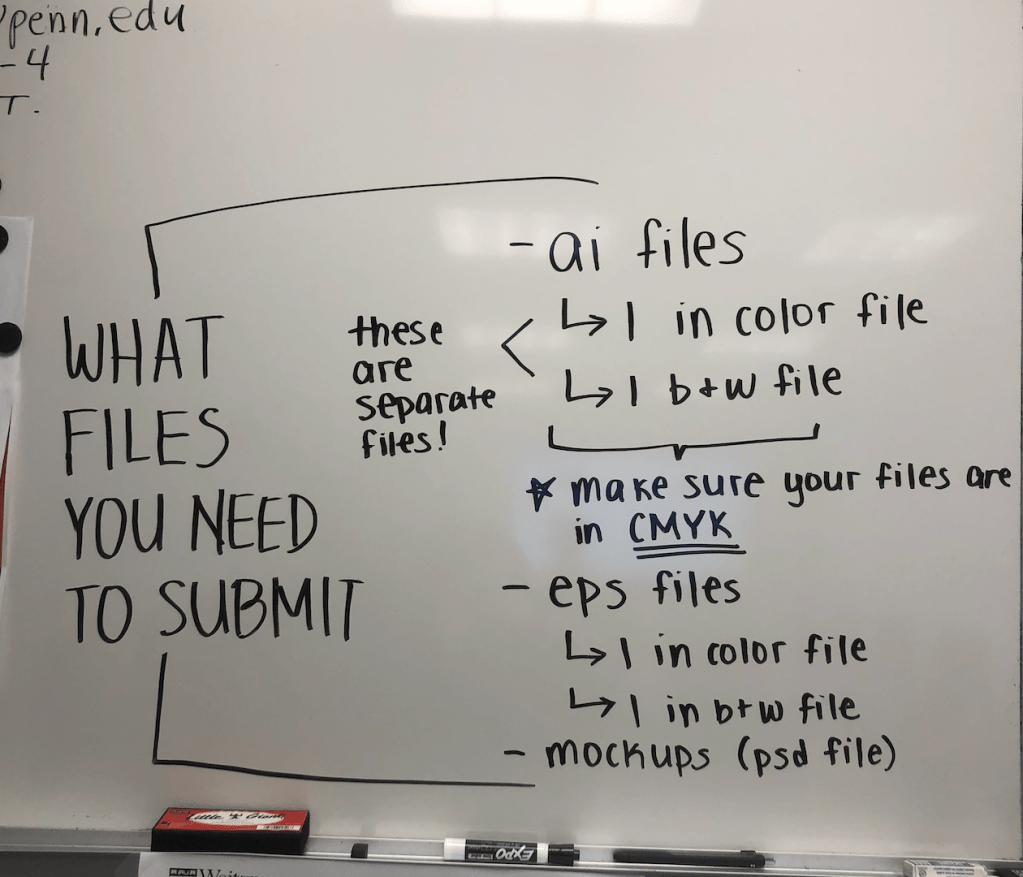 penn.edu
-4
T.
- ai files
↳ 1 in color file
↳ 1 b+w file
these
are
separate
files!
* make sure your files are
in CMYK
WHAT
FILES
YOU NEED
TO SUBMIT
- eps files
↳ 1 in color file
↳ 1 in b+w file
- mockups (psd file)
Little "N" Giant
EXPO